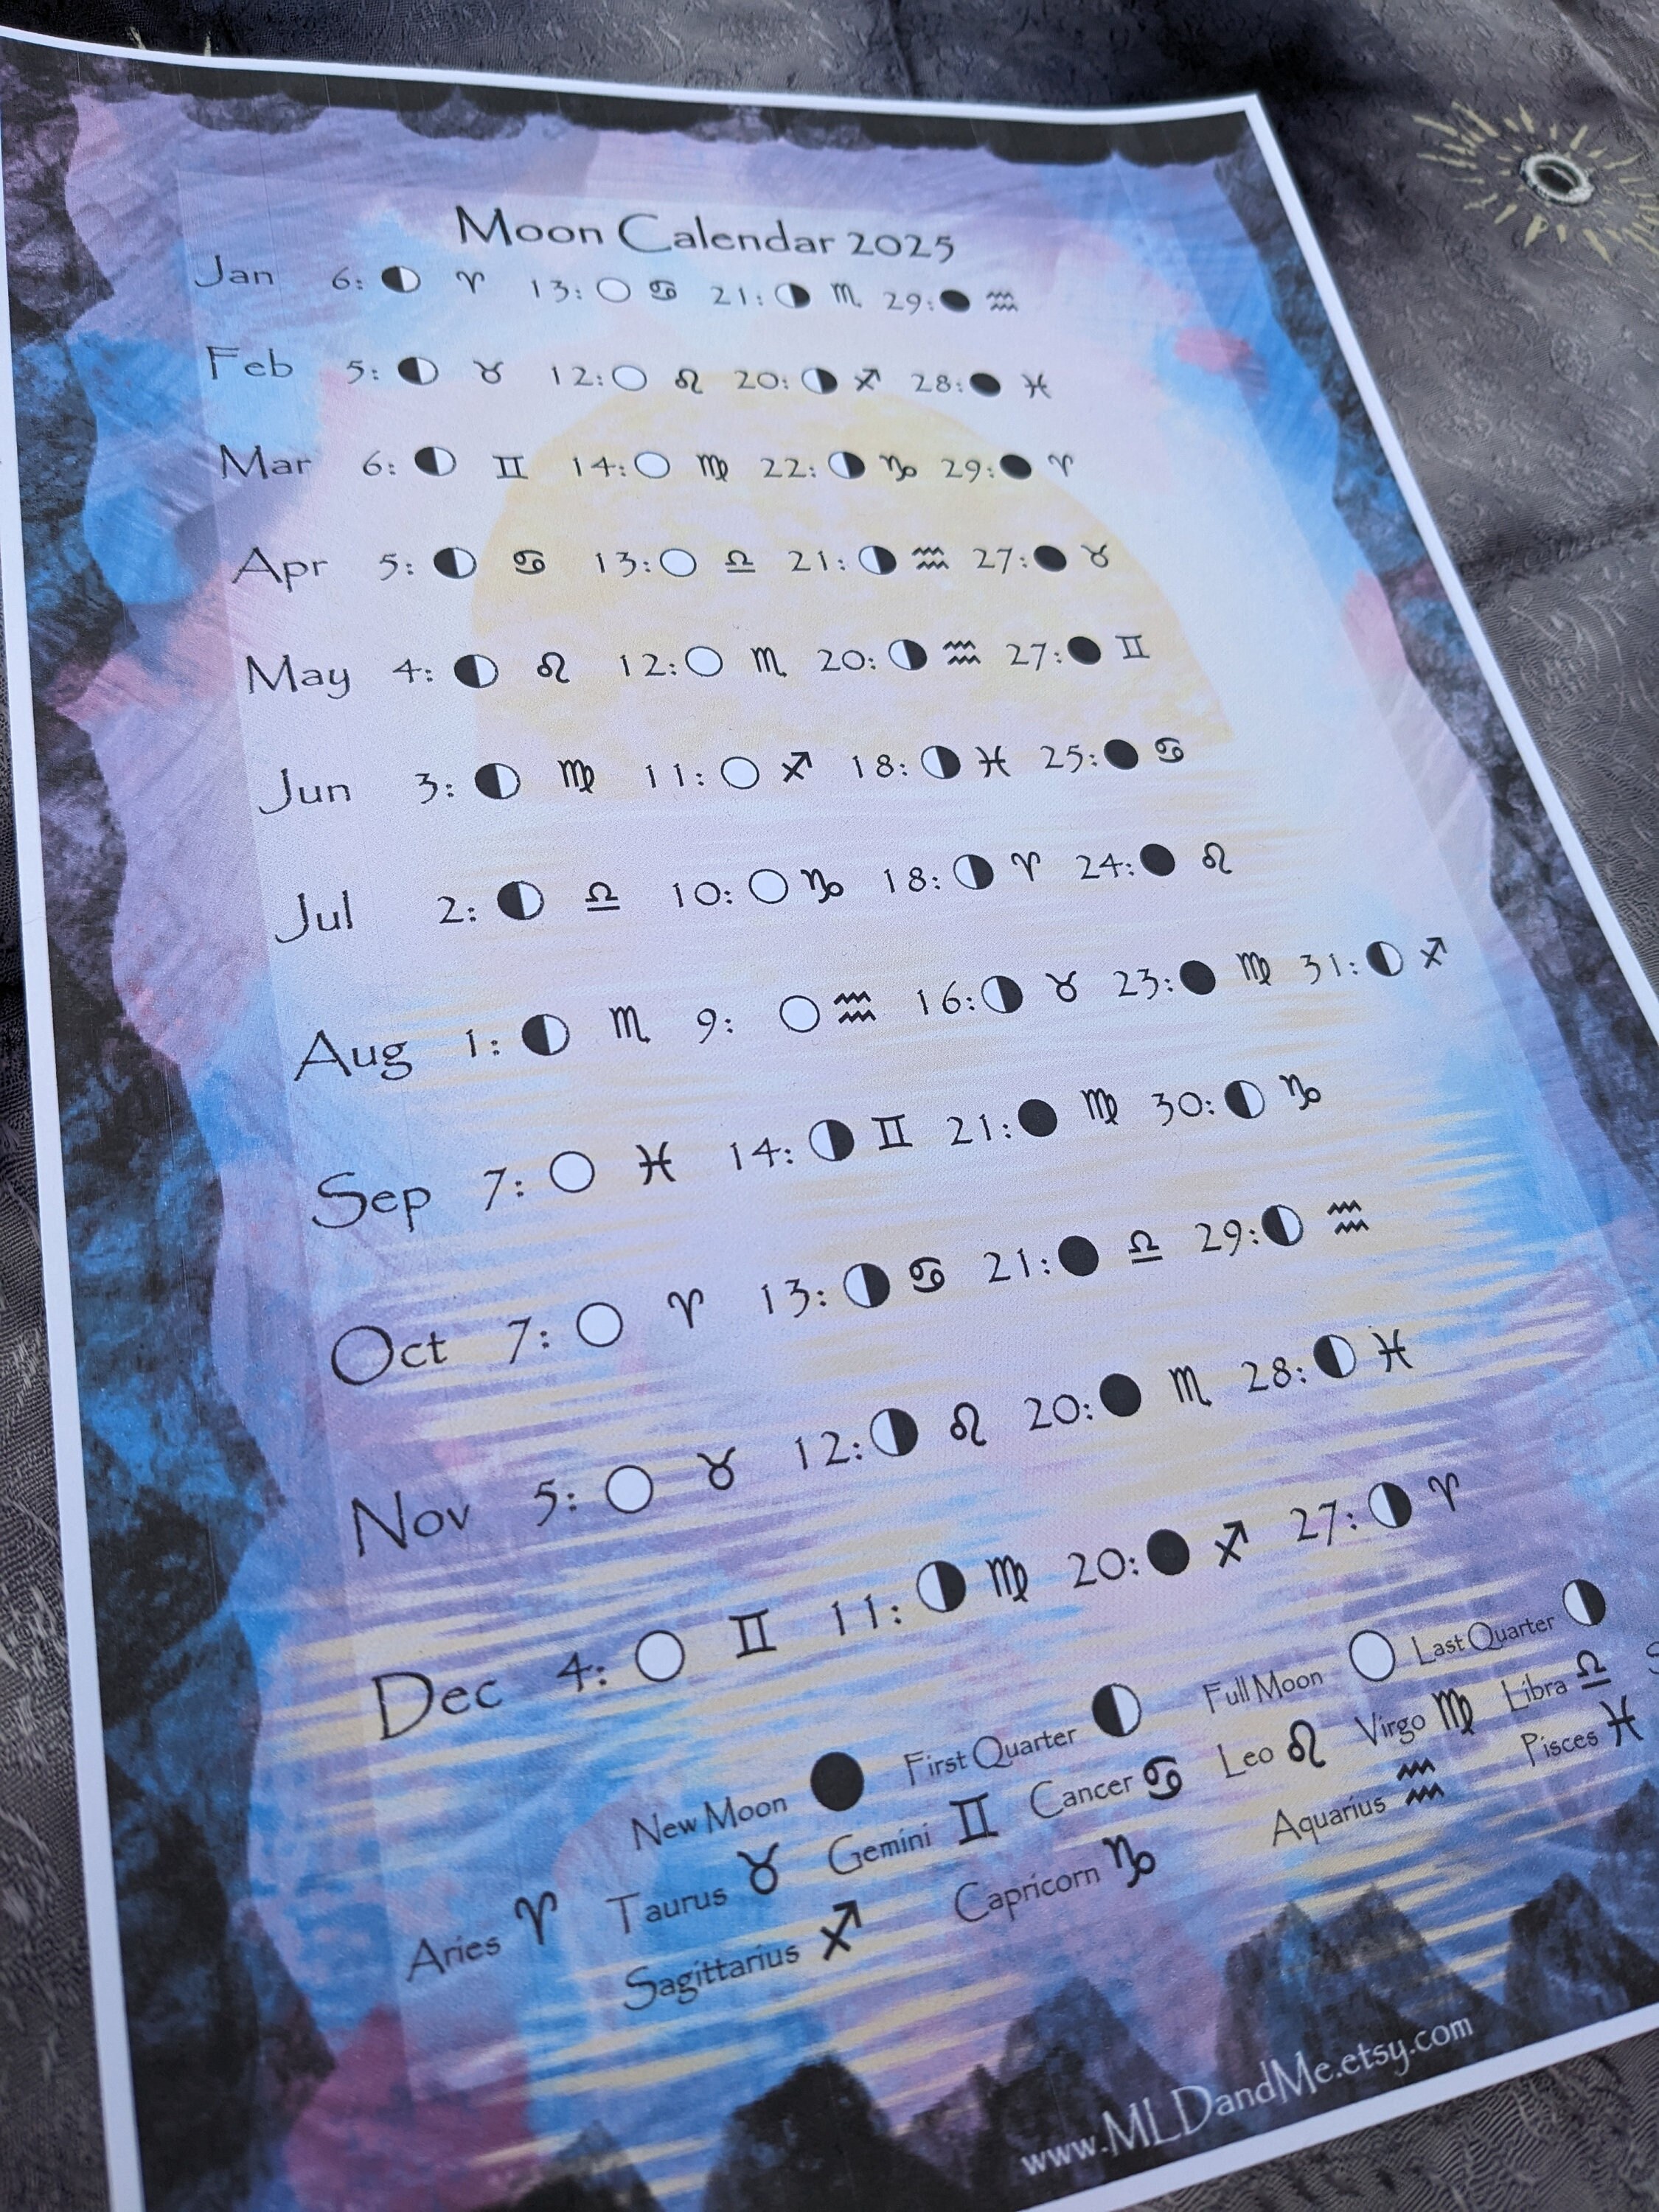 Moon Calendar 2025
Jan 6: 🌓 ♈ 13: 🌕 ♋ 21: 🌗 ♏ 29: 🌑 ♒
Feb 5: 🌓 ♉ 12: 🌕 ♌ 20: 🌗 ♐ 28: 🌑 ♓
Mar 6: 🌓 ♊ 14: 🌕 ♍ 22: 🌗 ♑ 29: 🌑 ♈
Apr 5: 🌓 ♋ 13: 🌕 ♎ 21: 🌗 ♒ 27: 🌑 ♉
May 4: 🌓 ♌ 12: 🌕 ♏ 20: 🌗 ♒ 27: 🌑 ♊
Jun 3: 🌓 ♍ 11: 🌕 ♐ 18: 🌗 ♓ 25: 🌑 ♋
Jul 2: 🌓 ♎ 10: 🌕 ♑ 18: 🌗 ♈ 24: 🌑 ♌
Aug 1: 🌓 ♏ 9: 🌕 ♒ 16: 🌗 ♉ 23: 🌑 ♍ 31: 🌓 ♐
Sep 7: 🌕 ♓ 14: 🌗 ♊ 21: 🌑 ♍ 30: 🌓 ♑
Oct 7: 🌕 ♈ 13: 🌗 ♋ 21: 🌑 ♎ 29: 🌓 ♒
Nov 5: 🌕 ♉ 12: 🌗 ♌ 20: 🌑 ♏ 28: 🌓 ♓
Dec 4: 🌕 ♊ 11: 🌗 ♍ 20: 🌑 ♐ 27: 🌗 ♈
New Moon 🌑 First Quarter 🌓 Full Moon 🌕 Last Quarter 🌗
Aries ♈ Taurus ♉ Gemini ♊ Cancer ♋ Leo ♌ Virgo ♍ Libra ♎
Sagittarius ♐ Capricorn ♑ Aquarius ♒ Pisces ♓
www.MLDandMe.etsy.com